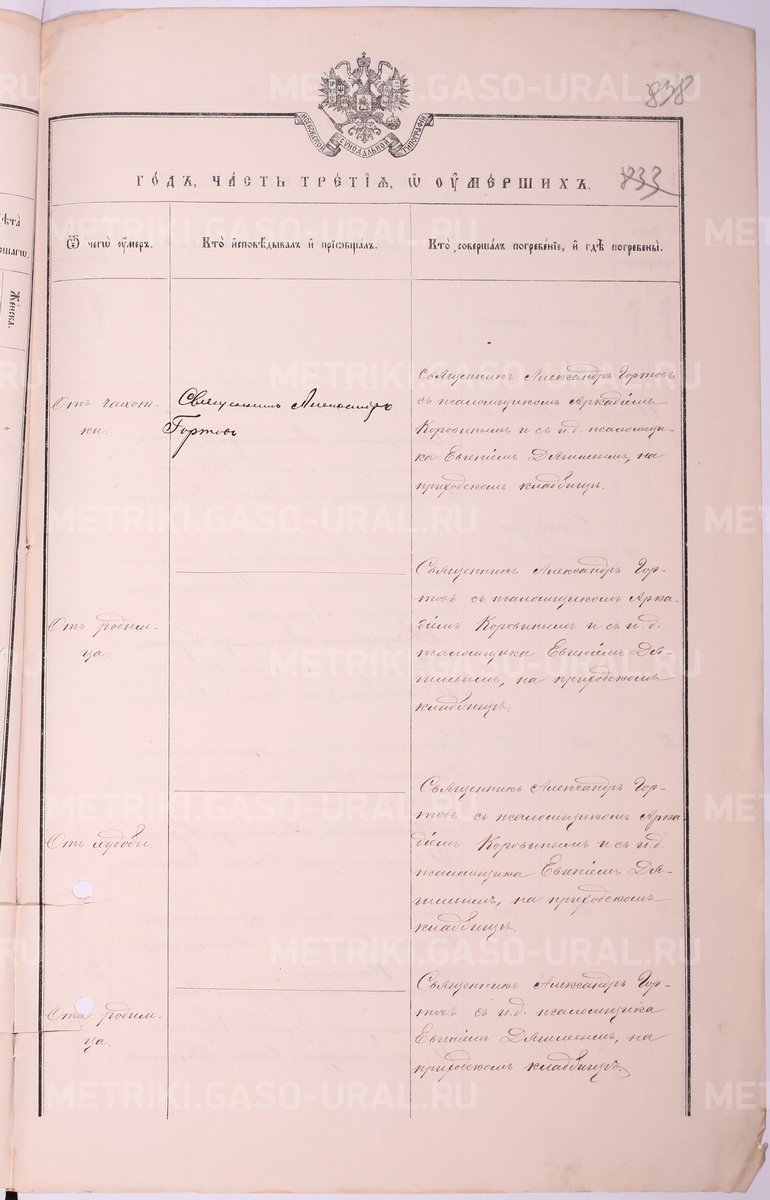 838
МОСКОВСКОЙ СѴНОДАЛЬНОЙ ТИПОГРАФІИ
ГОДЪ, ЧАСТЬ ТРЕТІЯ, Ѡ ОУМЕРШИХЪ.
833
Ѿ чегѡ оумеръ.
Кто исповѣдывалъ и прiѡбщалъ.
Кто совершалъ погребенiе, и гдѣ погребены.
Женска.
Отъ чахот-
ки.
Священникъ Александръ
Гортовъ
Священникъ Александръ Гортовъ
съ псаломщикомъ Аркадiемъ
Коровинымъ и съ и.д. псаломщи-
ка Евгенiемъ на
приходскомъ кладбищѣ.
Отъ родим-
ца.
Священникъ Александръ Гор-
товъ съ псаломщикомъ Арка-
дiемъ Коровинымъ и съ и.д.
псаломщика Евгенiемъ
на приходскомъ
кладбищѣ.
Отъ
Священникъ Александръ Гор-
товъ съ псаломщикомъ Арка-
дiемъ Коровинымъ и съ и.д.
псаломщика Евгенiемъ
на приходскомъ
кладбищѣ.
Отъ родим-
ца.
Священникъ Александръ Гор-
товъ съ и.д. псаломщика
Евгенiемъ на
приходскомъ кладбищѣ.
METRIKI.GASO-URAL.RU